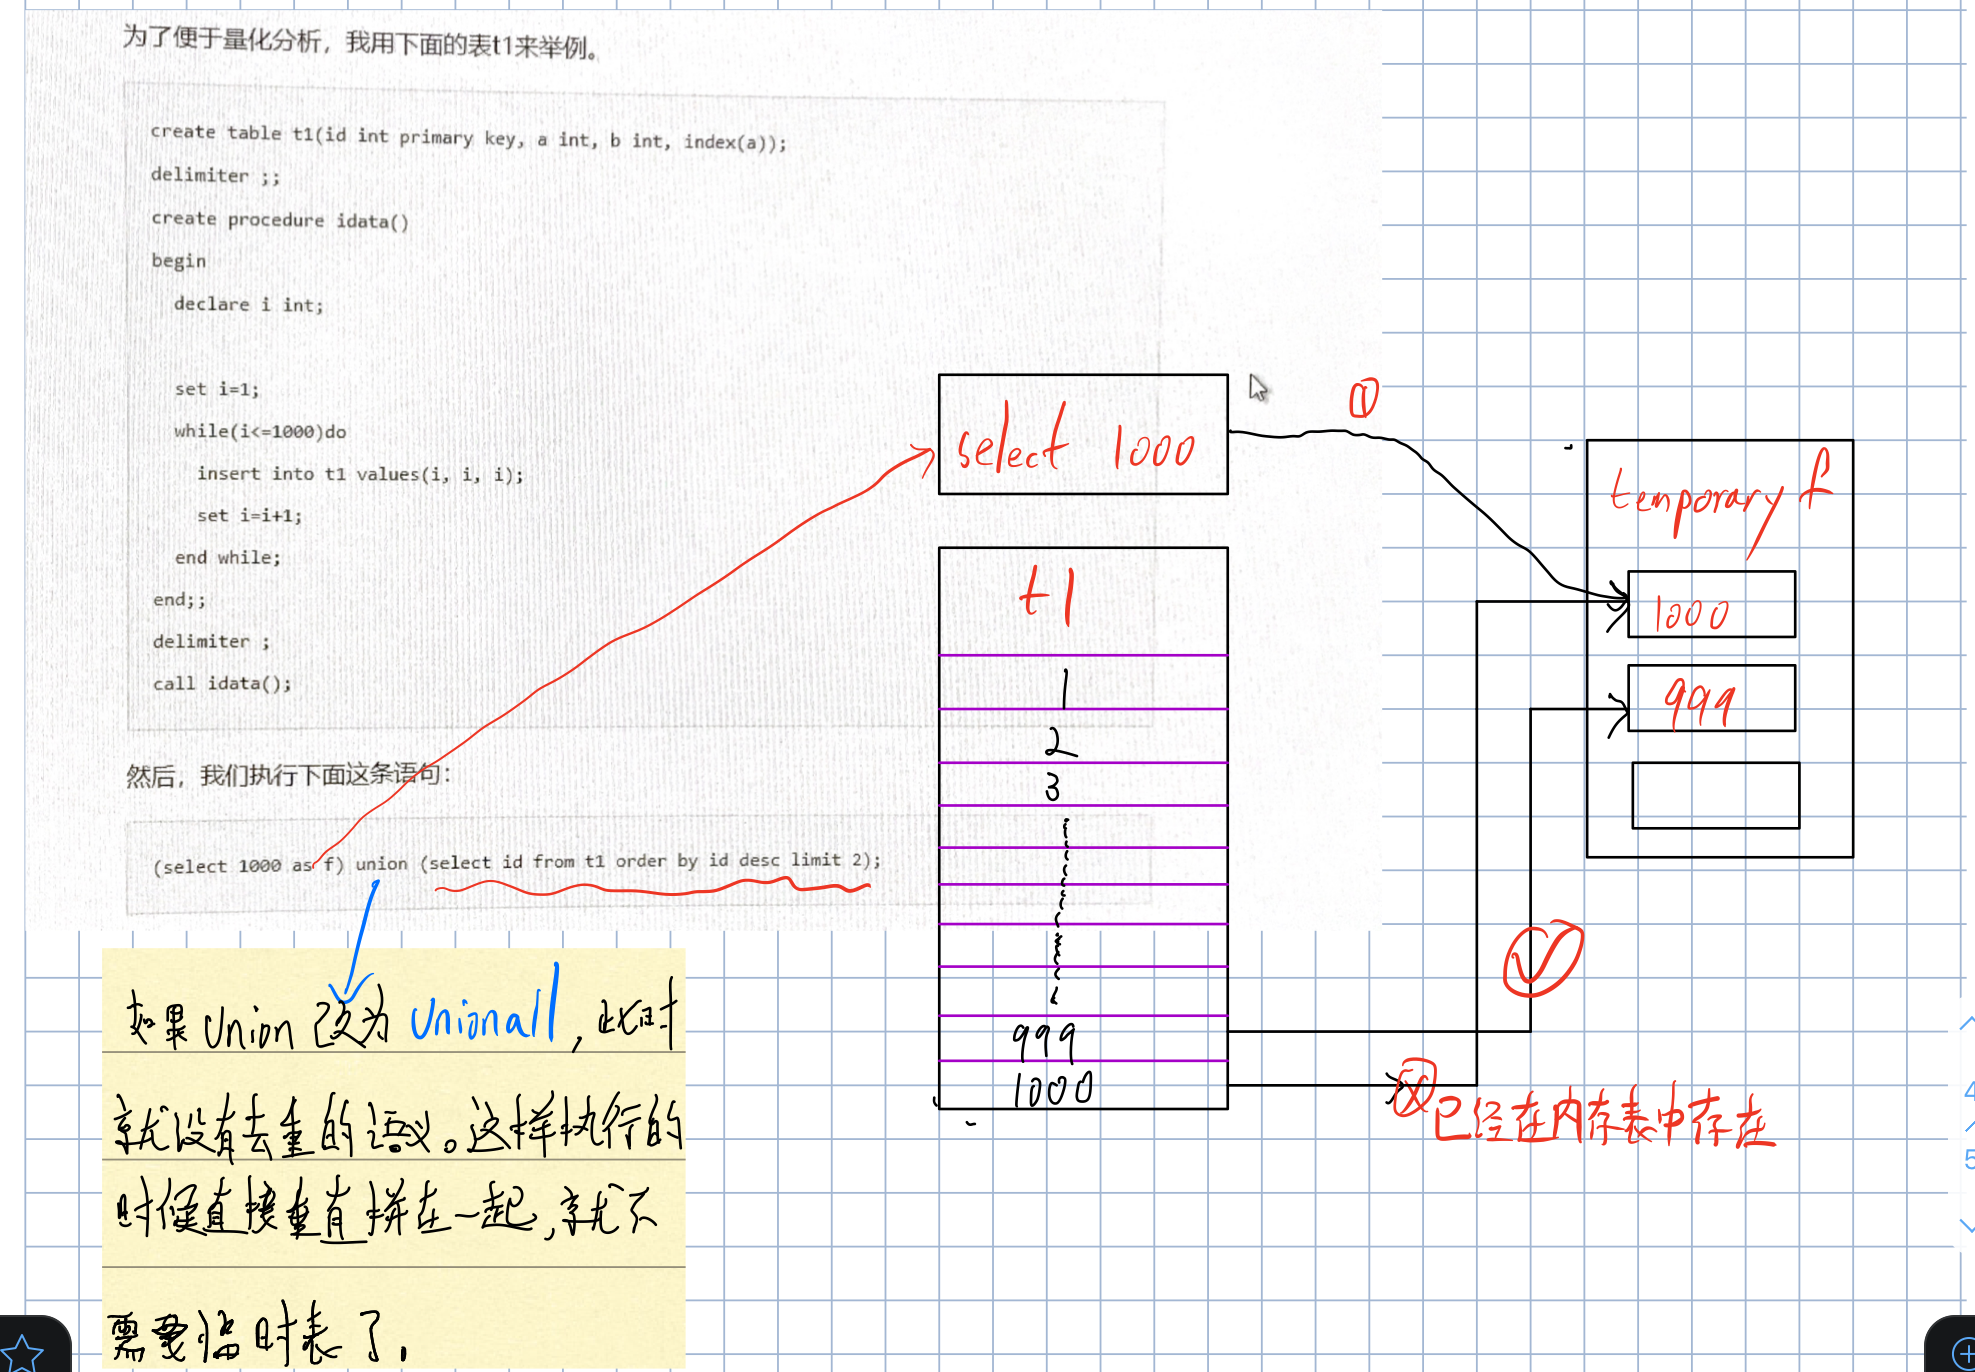 为了便于量化分析，我用下面的表t1来举例。
create table t1(id int primary key, a int, b int, index(a));
delimiter ;;
create procedure idata()
begin
declare i int;
set i=1;
while(i<=1000)do
insert into t1 values(i, i, i);
set i=i+1;
end while;
end;;
delimiter ;
call idata();
然后，我们执行下面这条语句：
(select 1000 as f) union (select id from t1 order by id desc limit 2);
如果union改为 Unionall，此时
就没有去重的语义。这样执行的
时候直接垂直拼在一起，就不
需要临时表了.
select 1000
①
t1
1
2
3
999
1000
temporary f
1000
999
已经在内存表中存在
4
5